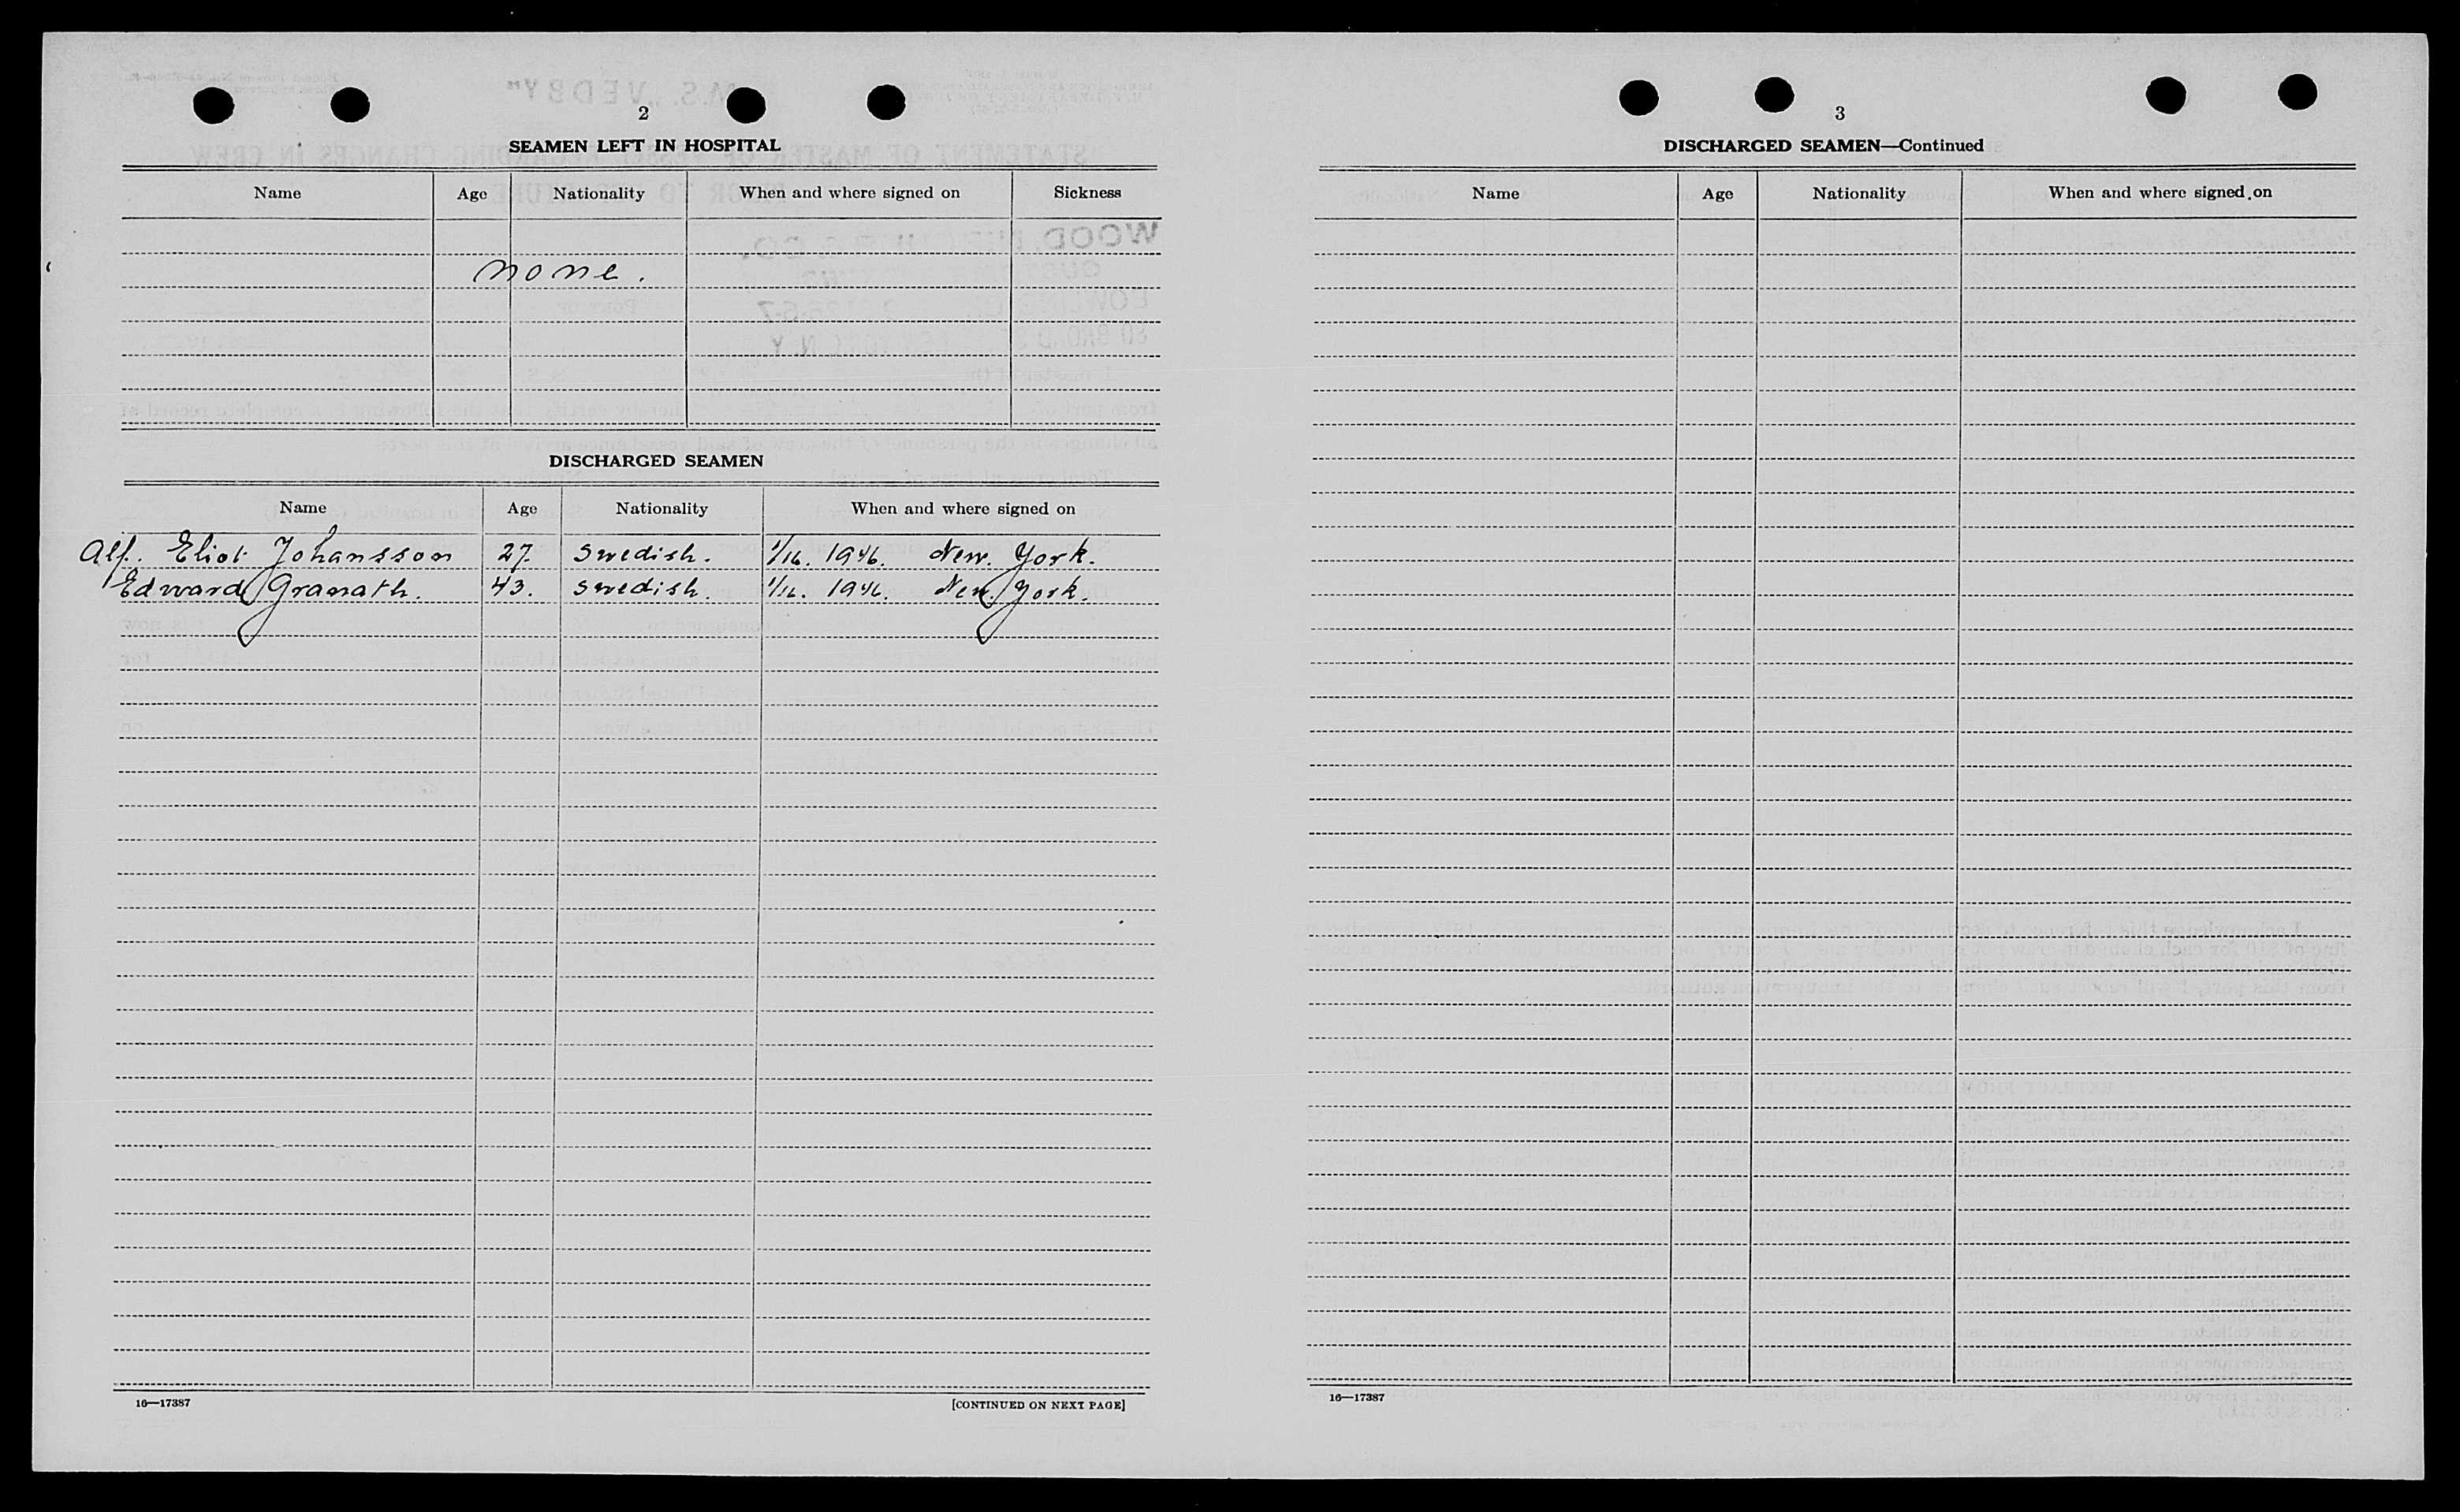 2
SEAMEN LEFT IN HOSPITAL
Name Age Nationality When and where signed on Sickness
none.
DISCHARGED SEAMEN
Name Age Nationality When and where signed on
Alf. Eliot Johansson 27. Swedish. 1/16. 1946. New. York.
Edward Granath. 43. Swedish. 1/16. 1946. New. York.
16—17387 [CONTINUED ON NEXT PAGE]
3
DISCHARGED SEAMEN—Continued
Name Age Nationality When and where signed on
16—17387